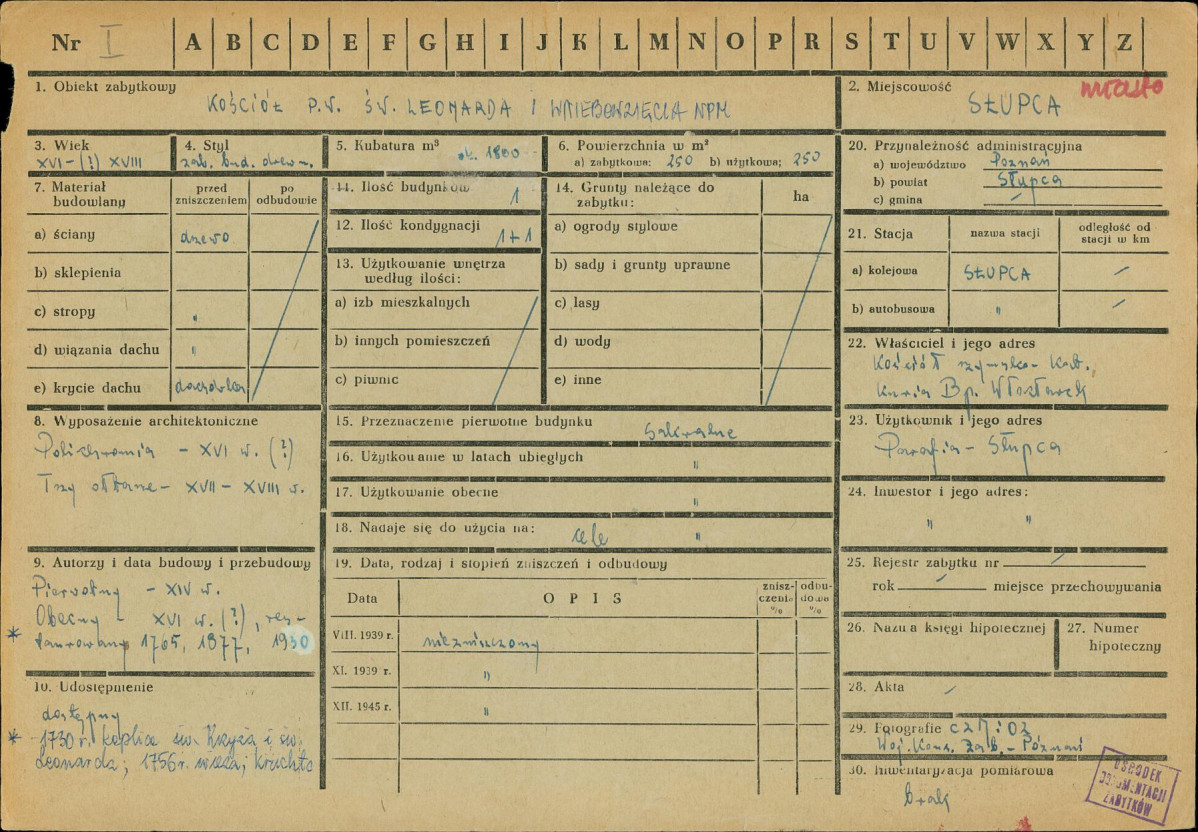 Nr I A B C D E F G H I J K L M N O P R S T U V W X Y Z
1. Obiekt zabytkowy
KOŚCIÓŁ P.W. ŚW. LEONARDA I WNIEBOWZIĘCIA NPM
2. Miejscowość
miasto
SŁUPCA
3. Wiek
XVI - (?) XVIII
4. Styl
zab. bud. drewn.
5. Kubatura m³
ok. 1800
6. Powierzchnia w m²
a) zabytkowa: 250 b) użytkowa: 250
7. Materiał budowlany
przed zniszczeniem
po odbudowie
a) ściany drzewo
b) sklepienia
c) stropy "
d) wiązania dachu "
e) krycie dachu dachówka
11. Ilość budynków 1
12. Ilość kondygnacji 1+1
13. Użytkowanie wnętrza
według ilości:
a) izb mieszkalnych
b) innych pomieszczeń
c) piwnic
14. Grunty należące do
zabytku:
ha
a) ogrody stylowe
b) sady i grunty uprawne
c) lasy
d) wody
e) inne
20. Przynależność administracyjna
a) województwo Poznań
b) powiat Słupca
c) gmina /
21. Stacja
nazwa stacji
odległość od
stacji w km
a) kolejowa SŁUPCA /
b) autobusowa " /
22. Właściciel i jego adres
Kościół rzymsko-kat.
Kuria Bp. Włocławek
8. Wyposażenie architektoniczne
Polichromia - XVI w. (?)
Trzy ołtarze - XVII - XVIII w.
15. Przeznaczenie pierwotne budynku
sakralne
16. Użytkowanie w latach ubiegłych "
17. Użytkowanie obecne "
18. Nadaje się do użycia na: cele "
23. Użytkownik i jego adres
Parafia - Słupca
24. Inwestor i jego adres:
" "
9. Autorzy i data budowy i przebudowy
Pierwotny - XIV w.
Obecny - XVI w. (?), res-
* taurowany 1765, 1877, 1930
10. Udostępnienie
dostępny
* 1730 r. kaplica św. Krzyża i św.
Leonarda; 1756 r. wieża, kruchta
19. Data, rodzaj i stopień zniszczeń i odbudowy
Data
OPIS
znisz-
czenia
%
odbu-
dowa
%
VIII. 1939 r. niezniszczony
XI. 1939 r. "
XII. 1945 r. "
25. Rejestr zabytku nr /
rok / miejsce przechowywania
26. Nazwa księgi hipotecznej
27. Numer
hipoteczny
28. Akta /
29. Fotografie CZM: OZ
Woj. Kons. Zab. - Poznań
30. Inwentaryzacja pomiarowa
brak
OŚRODEK
DOKUMENTACJI
ZABYTKÓW